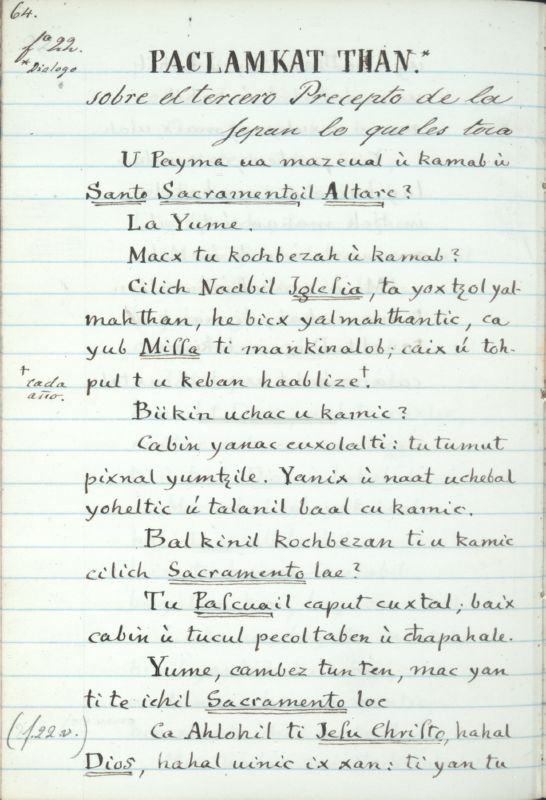 64.
fa 22.
* Dialogo
PACLAMKAT THAN.*
sobre el tercero Precepto de la
sepan lo que les toca
U Payma ua mazeual ù kamab ù
Santo Sacramentoil Altare?
La Yume.
Macx tu kochbezah ù kamab?
Cilich Naabil Igleſia, ta yoxtzol yal-
mahthan, he bicx yalmahthantic, ca
yub Miſſa ti mankinalob; caix ú toh-
pul t u keban haablize†.
† cada
año.
Biikin uchac u kamic?
Cabin yanac cuxolalti: tu tumut
pixnal yumtzile. Yanix ù naat uchebal
yoheltic ú talanil baal cu kamic.
Bal kinil kochbezan ti u kamic
cilich Sacramento lae?
Tu Paſcuail caput cuxtal; baix
cabin ù tucul pecoltaben ù chapahale.
Yume, cambez tun ten, mac yan
ti te ichil Sacramento loe
(f. 22 v.)
Ca Ahlohil ti Jeſu Chriſto, hahal
Dios, hahal uinic ix xan: ti yan tu